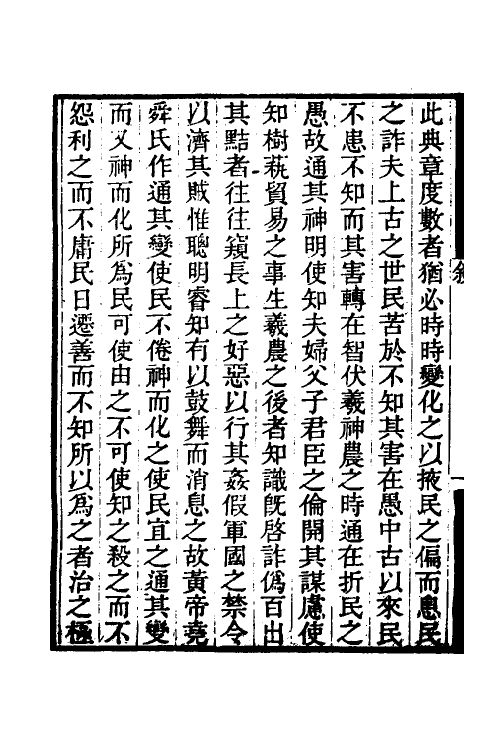 此典章度數者猶必時時變化之以掖民之偏而息民
之詐夫上古之世民苦於不知其害在愚中古以來民
不患不知而其害轉在智伏羲神農之時通在折民之
愚故通其神明使知夫婦父子君臣之倫開其謀慮使
知樹蓺貿易之事生羲農之後者知識旣啓詐僞百出
其黠者往往窺長上之好惡以行其姦假軍國之禁令
以濟其賊惟聰明睿知有以鼓舞而消息之故黃帝堯
舜氏作通其變使民不倦神而化之使民宜之通其變
而又神而化所爲民可使由之不可使知之殺之而不
怨利之而不庸民日遷善而不知所以爲之者治之極